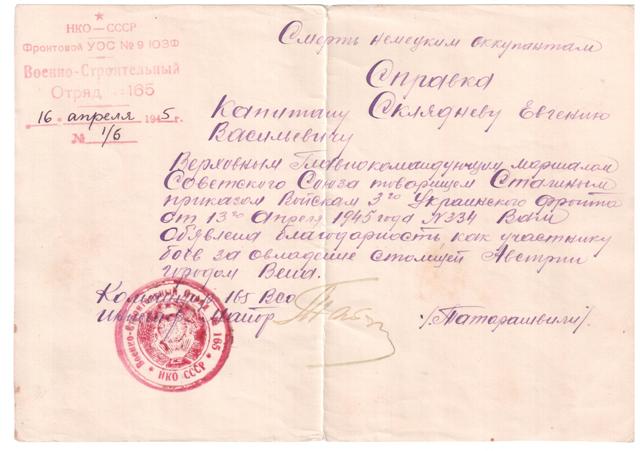 НКО—СССР
Фронтовой УОС № 9 ЮЗФ
Военно-Строительный
Отряд 165
"16" апреля 1945 г.
№ 1/6
Смерть немецким оккупантам
Справка
Капитану Скляднeву Евгению
Васильевичу
Верховным Главнокомандующим маршалом
Советского Союза товарищем Сталиным
приказом Войскам 3го Украинского фронта
от 13го апреля 1945 года №334 Вам
Объявлена благодарность как участнику
боев за овладение столицей Австрии
городом Вена.
165 ВСО
Майор /Патарашвили/.
Военно-Строительный отряд № 165 * НКО СССР *